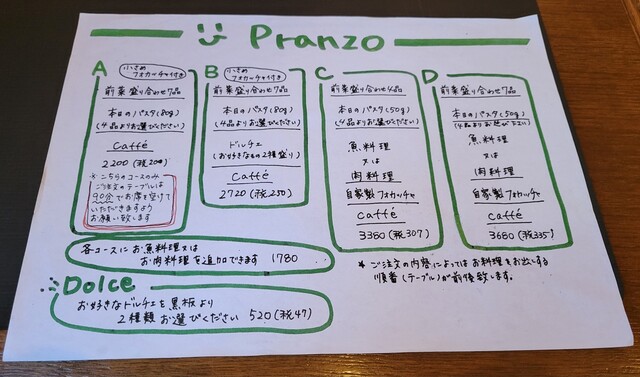 Pranzo
A
小さめ
フォカッチャ付き
前菜盛り合わせ7品
本日のパスタ(80g)
(4品よりお選びください)
Caffé
2200(税200)
※こちらのコースのみ
ご注文のテーブルは
90分でお席を空けて
いただきますよう
お願い致します
B
小さめ
フォカッチャ付き
前菜盛り合わせ7品
本日のパスタ(80g)
(4品よりお選びください)
ドルチェ
(お好きなもの2種盛り)
Caffé
2720(税250)
C
前菜盛り合わせ4品
本日のパスタ(50g)
(4品よりお選びください)
魚料理
又は
肉料理
自家製フォカッチャ
Caffé
3380(税307)
D
前菜盛り合わせ7品
本日のパスタ(50g)
魚料理
又は
肉料理
自家製フォカッチャ
Caffé
3680(税335)
各コースにお魚料理又は
お肉料理を追加できます 1780
Dolce
お好きなドルチェを黒板より
2種類お選びください 520(税47)
* ご注文の内容によってはお料理をお出しする
順番(テーブル)が前後致します。